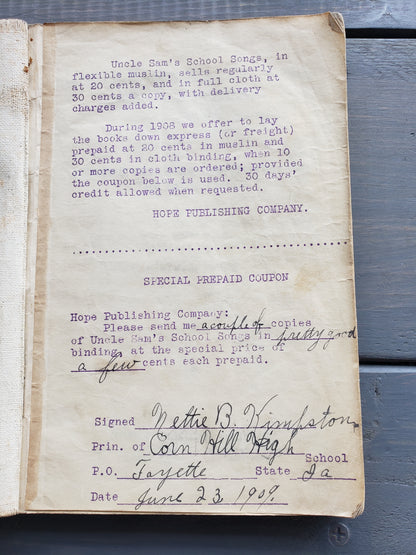 Uncle Sam's School Songs, in
flexible muslin, sells regularly
at 20 cents, and in full cloth at
30 cents a copy, with delivery
charges added.
During 1908 we offer to lay
the books down express (or freight)
prepaid at 20 cents in muslin and
30 cents in cloth binding, when 10
or more copies are ordered; provided
the coupon below is used. 30 days'
credit allowed when requested.
HOPE PUBLISHING COMPANY.
SPECIAL PREPAID COUPON
Hope Publishing Company:
Please send me a couple of copies
of Uncle Sam's School Songs in pretty good
binding, at the special price of
a few cents each prepaid.
Signed Nettie B. Kimpston
Prin. of Corn Hill High School
P.O. Fayette State Ia
Date June 23, 1909.